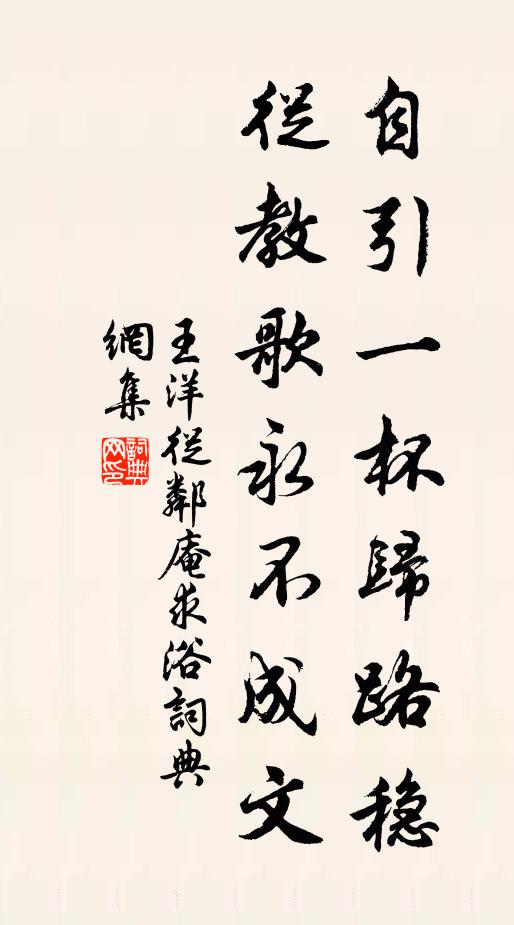 自引一杯歸路稳
從教歌永不成文
王洋從鄰庵求浴詞典
網集
詞典网印